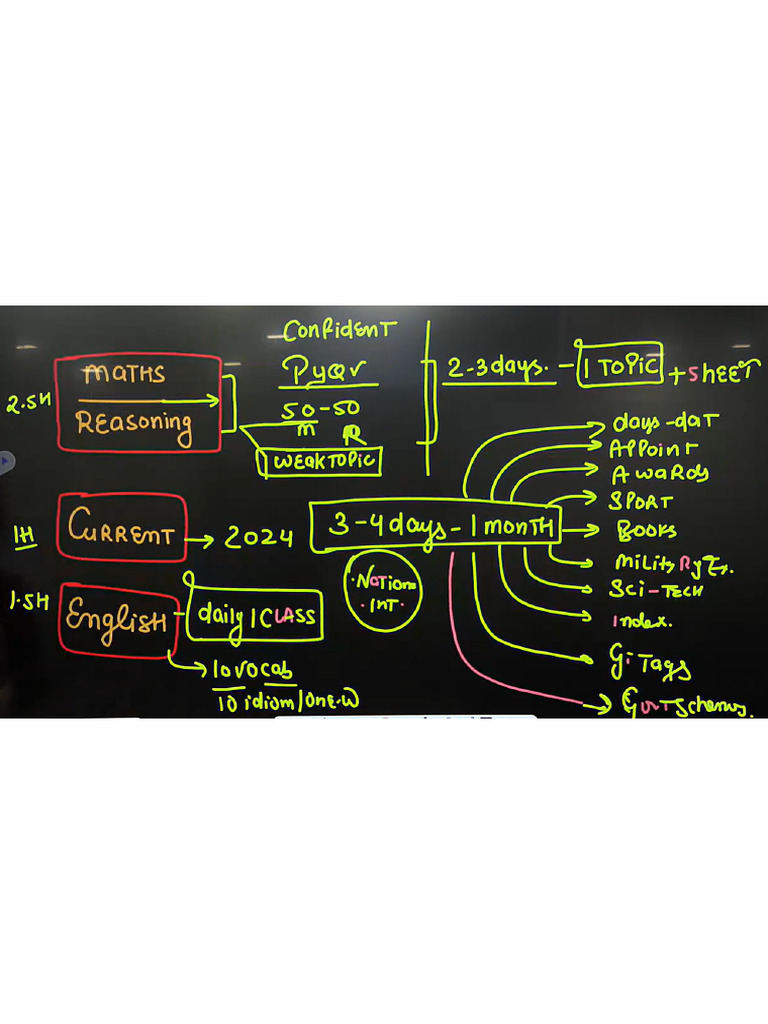 Confident
2.5H
MATHS
REasoning
Pyqr
50-50
M R
WEAK TOPIC
2-3 days. - 1 TOPIC + SHEET
1H
CURRENT → 2024
3-4 days - 1 MONTH
days - daT
APPoinT
AWARds
SPORT
BOOKS
MiLitsRy Ex.
Sci-TECH
Index.
Gi Tags
GovT Schemes.
• NaTiona
• INT •
1.5H
English - daily 1 CLASS
→ 10 vocab
10 idiom/one-W